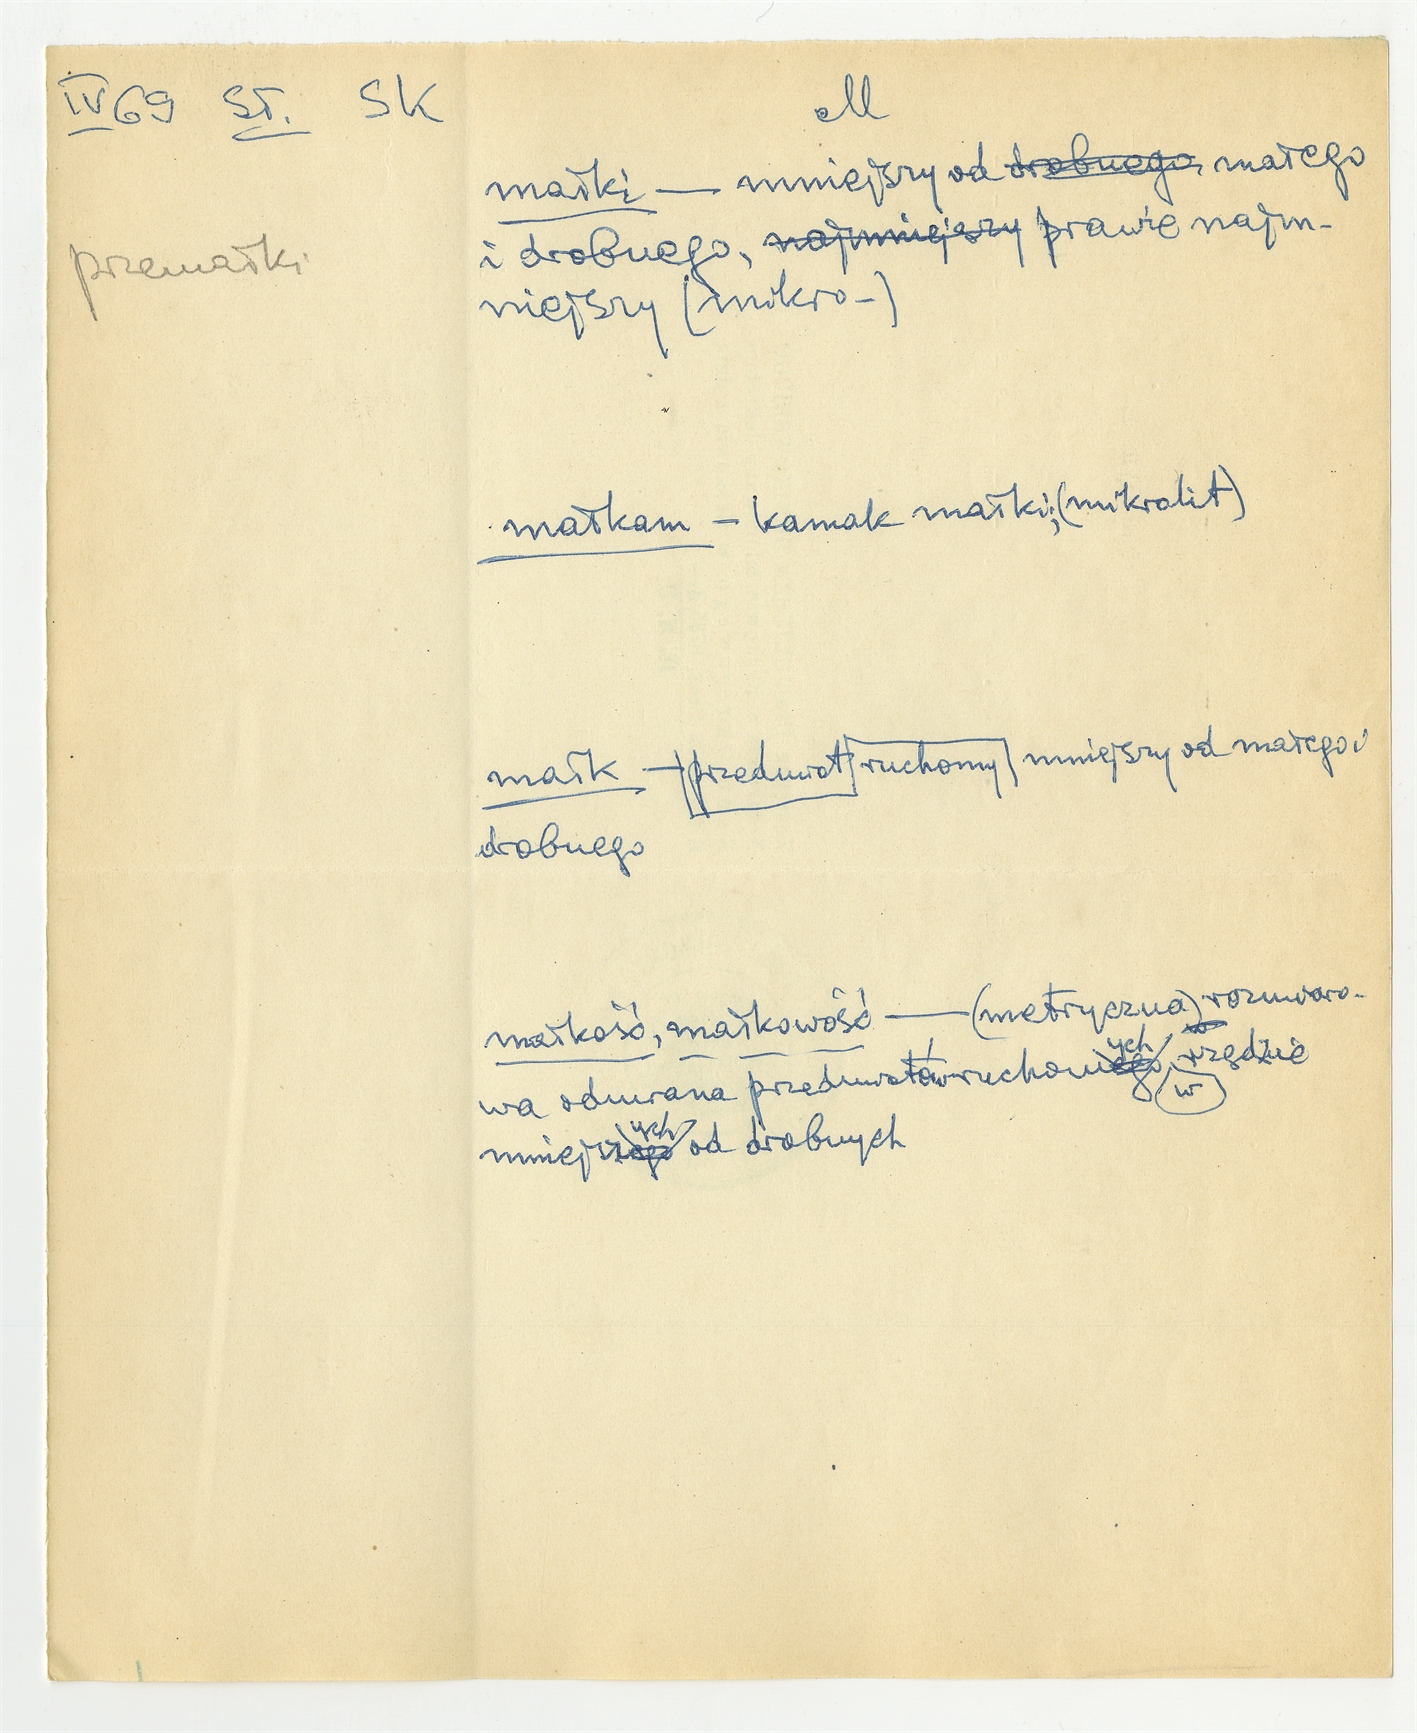 IV 69 ST. SK
M
małki — mniejszy od drobnego, małego
przemałki
i drobnego, najmniejszy prawie najm-
niejszy (mikro-)
małkam – kamak małki; (mikrolit)
małk – przedmiot ruchomy mniejszy od małego i
drobnego
małkość, małkowość — (metryczna) rozmiaro-
wa odmiana przedmiotów ruchomych, w rzędzie
mniejszych od drobnych